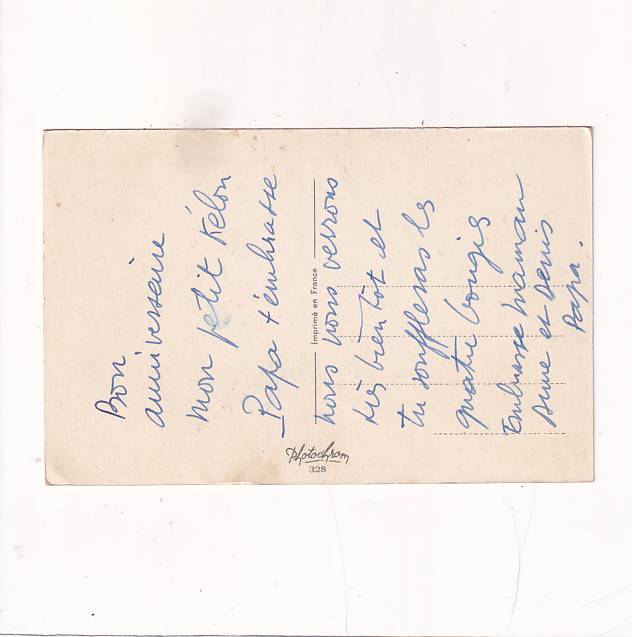 Bon
anniverseire
mon petit Kélou
Papa t'embrasse
nous nous verrons
très bientôt et
tu souffleras les
quatre bougies
Embrasse maman
Anne et Denis
Papa.
Imprimé en France
Photochrom
328